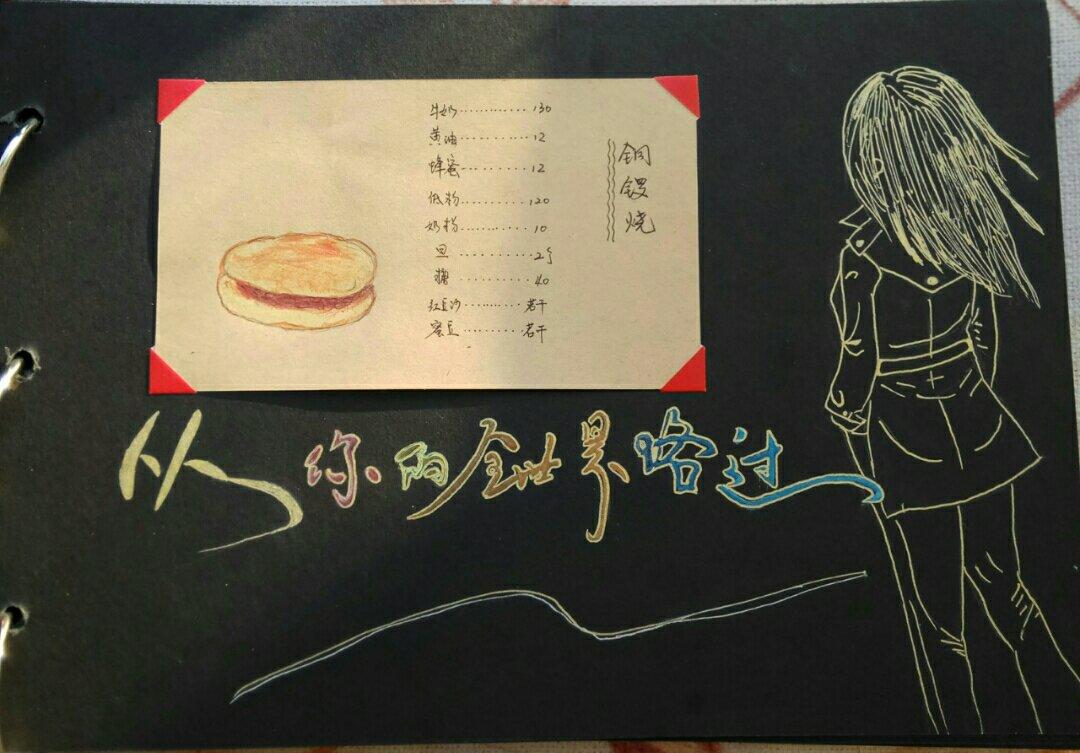 铜锣烧
牛奶............130
黄油............12
蜂蜜............12
低粉............120
奶粉............10
旦............2个
糖............40
红豆沙............若干
蜜豆............若干
从你的全世界路过